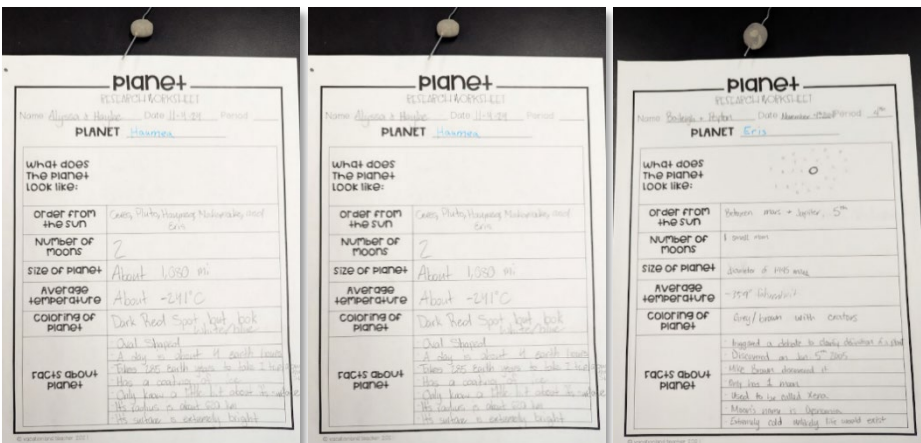 Planet
RESEARCH WORKSHEET
Name Alyssa & Date 11-4-24 Period
PLANET Haumea
What does
The Planet
LOOK LIKE:
Order from
the sun
Ceres, Pluto, Haumea, Makemake, and
Eris
Number of
Moons
2
Size of Planet
About 1,080 mi
Average
temperature
About -241°C
Coloring of
Planet
Dark Red Spot, but look
white/blue
Facts about
Planet
Oval Shaped
A day is about 4 earth hours
Takes 285 earth years to take 1
Has a coating of
Only know a little bit about its surface
Its radius is about km
Its surface is extremely bright
Planet
RESEARCH WORKSHEET
Name Alyssa & Date 11-4-24 Period
PLANET Haumea
What does
The Planet
LOOK LIKE:
Order from
the sun
Ceres, Pluto, Haumea, Makemake, and
Eris
Number of
Moons
2
Size of Planet
About 1,080 mi
Average
temperature
About -241°C
Coloring of
Planet
Dark Red Spot, but look
white/blue
Facts about
Planet
Oval Shaped
A day is about 4 earth hours
Takes 285 earth years to take 1
Has a coating of
Only know a little bit about its surface
Its radius is about km
Its surface is extremely bright
Planet
RESEARCH WORKSHEET
Name Date November Period 4th
PLANET Eris
What does
The Planet
LOOK LIKE:
Order from
the sun
Between mars + Jupiter, 5th
Number of
Moons
1 small moon
Size of Planet
diameter of 1445 miles
Average
temperature
-359° fahrenheit
Coloring of
Planet
Grey/brown with craters
Facts about
Planet
triggered a debate to clarify definition of a planet
Discovered on Jan 5th 2005
Mike Brown discovered it
Only has 1 moon
Used to be called Xena
Moon's name is Dysnomia
Extremely cold unlikely life would exist